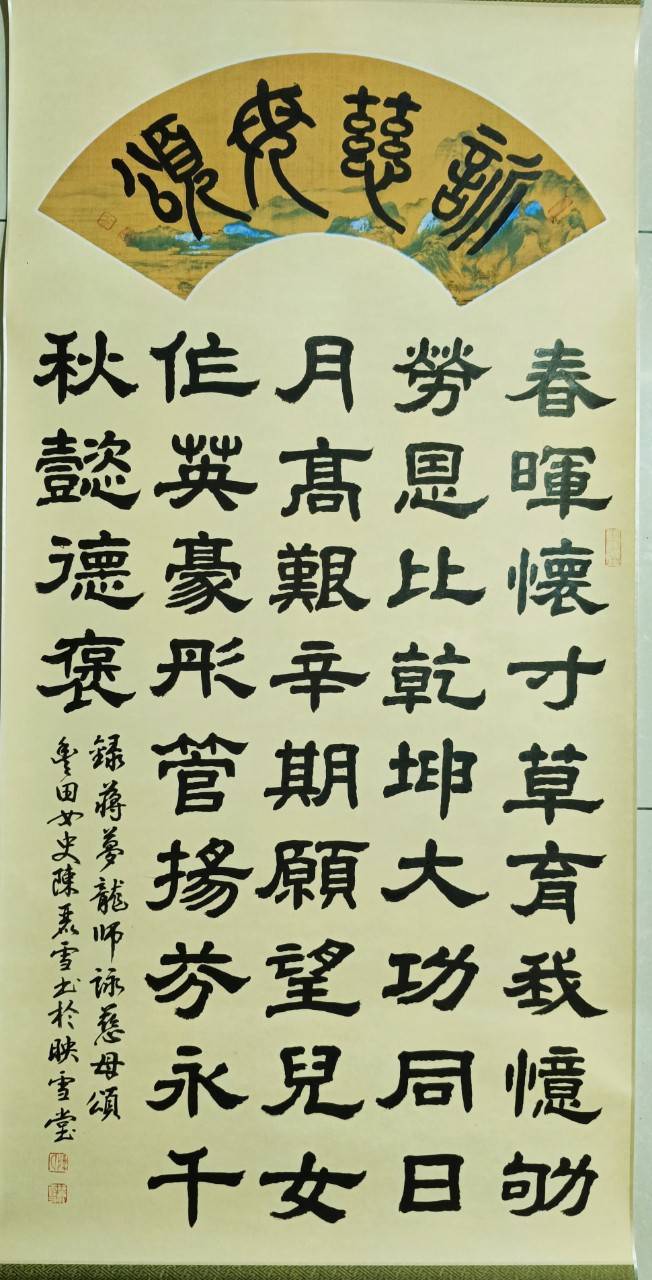 詠慈母頌
春暉懷寸草育我憶劬
勞恩比乾坤大功同日
月高艱辛期願望兒女
作英豪彤管揚芬永千
秋懿德褒
録蔣夢龍師詠慈母頌
田女史陳麗雪书於映雪堂